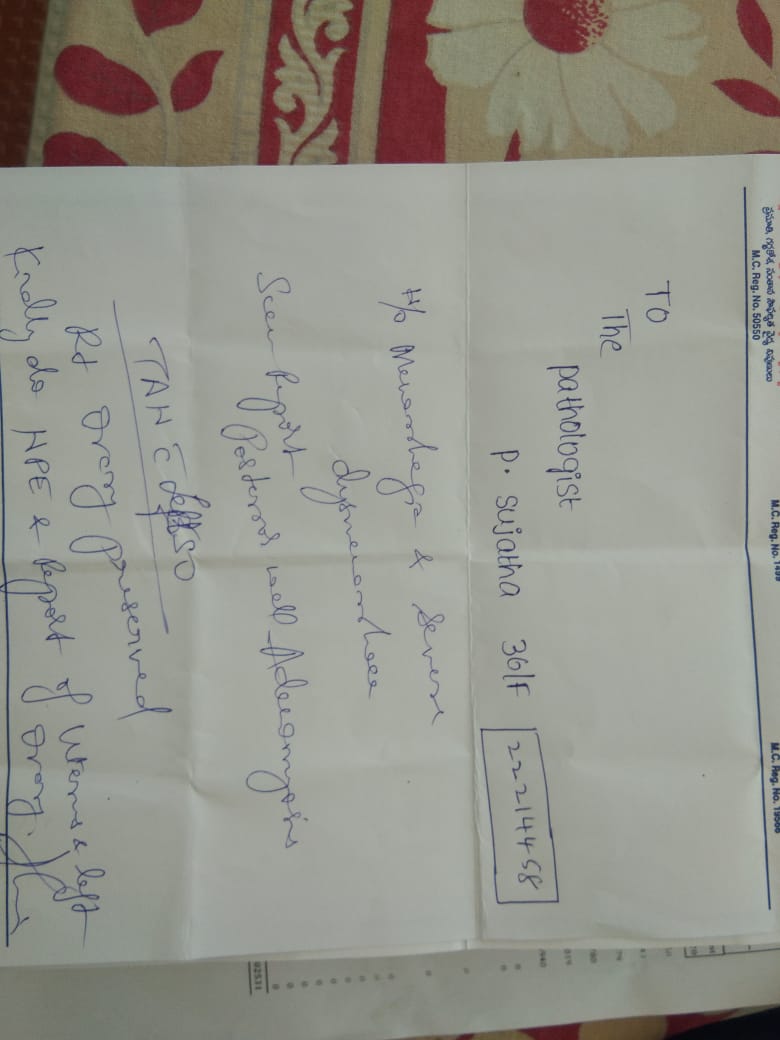 M.C. Reg. No. 50550
To
The
pathologist
P. Sujatha 36/F 22214458
H/o Menorrhagia & Severe
dysmenorrhoea
Scan Report
Posterior wall Adenomyosis
TAH c left SO
Rt Ovary Preserved
Kindly do HPE & Report of Uterus & left
Ovary.
02531